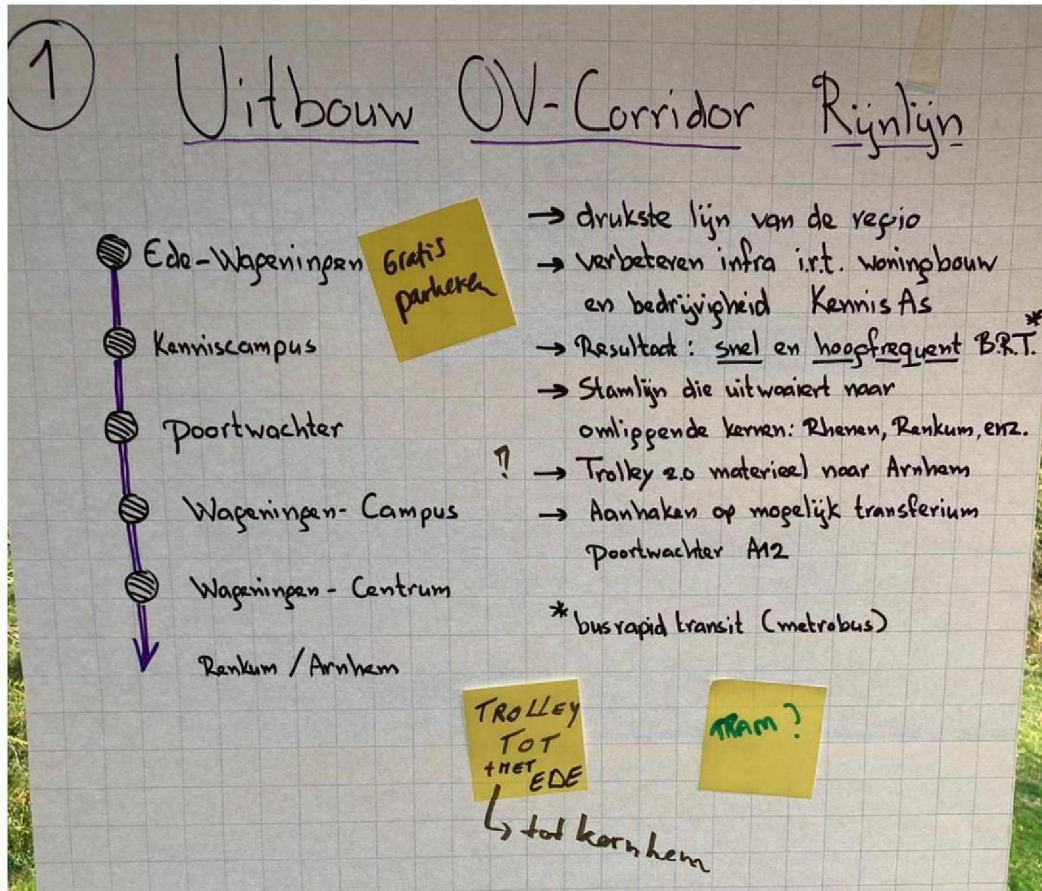 1
Uitbouw OV-Corridor Rijnlijn
Ede-Wageningen
Kenniscampus
Poortwachter
Wageningen-Campus
Wageningen-Centrum
Renkum/Arnhem
Gratis
parkeren
→ drukste lijn van de regio
→ verbeteren infra i.r.t. woningbouw
en bedrijvigheid Kennis As
→ Resultaat: snel en hoogfrequent B.R.T.*
→ Stamlijn die uitwaaiert naar
omliggende kernen: Rhenen, Renkum, enz.
? → Trolley 2.0 materieel naar Arnhem
→ Aanhaken op mogelijk transferium
Poortwachter A12
* bus rapid transit (metrobus)
TROLLEY
TOT
+MET
EDE
↳ tot kernhem
TRAM?